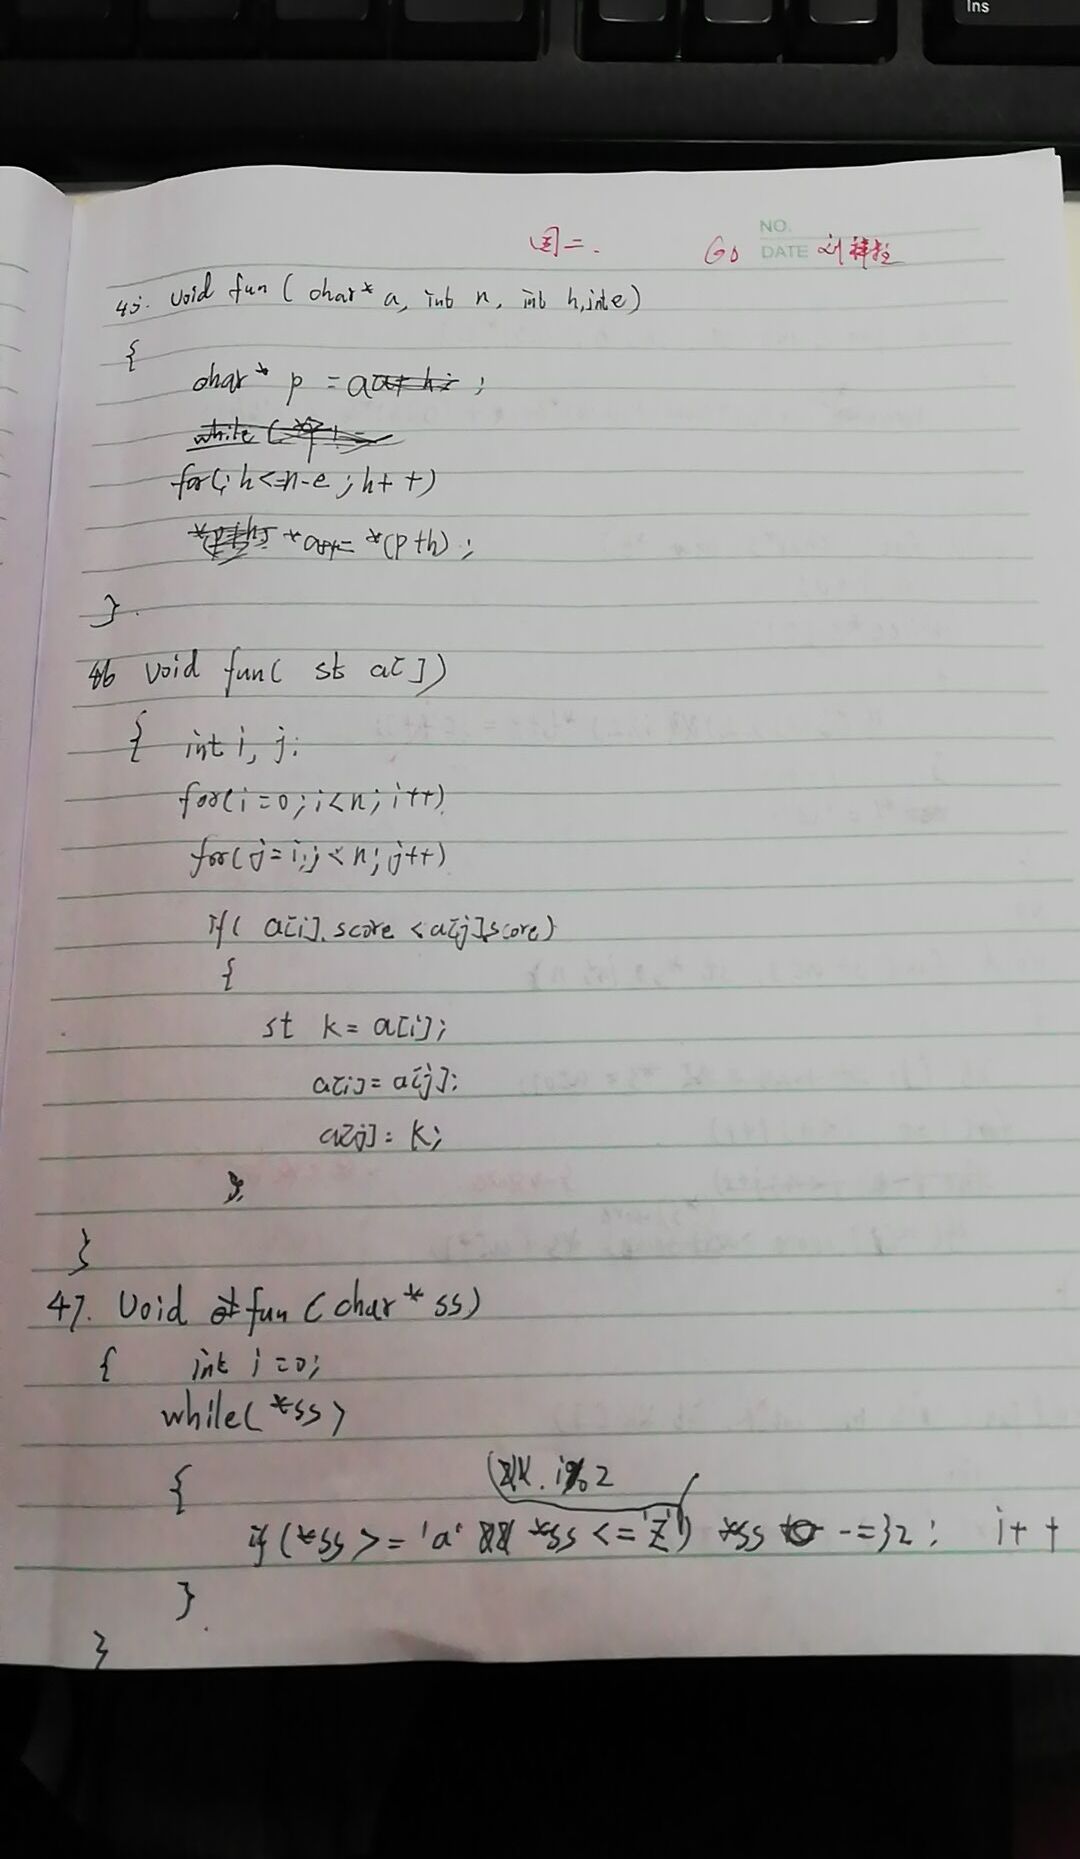 Ins
周二. G0 NO.
DATE 刘祥拴
45. void fun ( char* a, int n, int h, int e)
{
char* p = a ;
while (
for(; h<=n-e ; h++)
*a++= *(p+h) ;
}
46 void fun( st a[ ])
{ int i, j;
for(i=0; i<n; i++)
for(j=i; j<n; j++)
if( a[i]. score < a[j].score)
{
st k= a[i];
a[i]= a[j];
a[j]= k;
}
}
47. void fun (char* ss)
{ int i=0;
while(*ss)
{ && i%2
if(*ss >= 'a' && *ss <= 'z') *ss -=32; i++
}
}